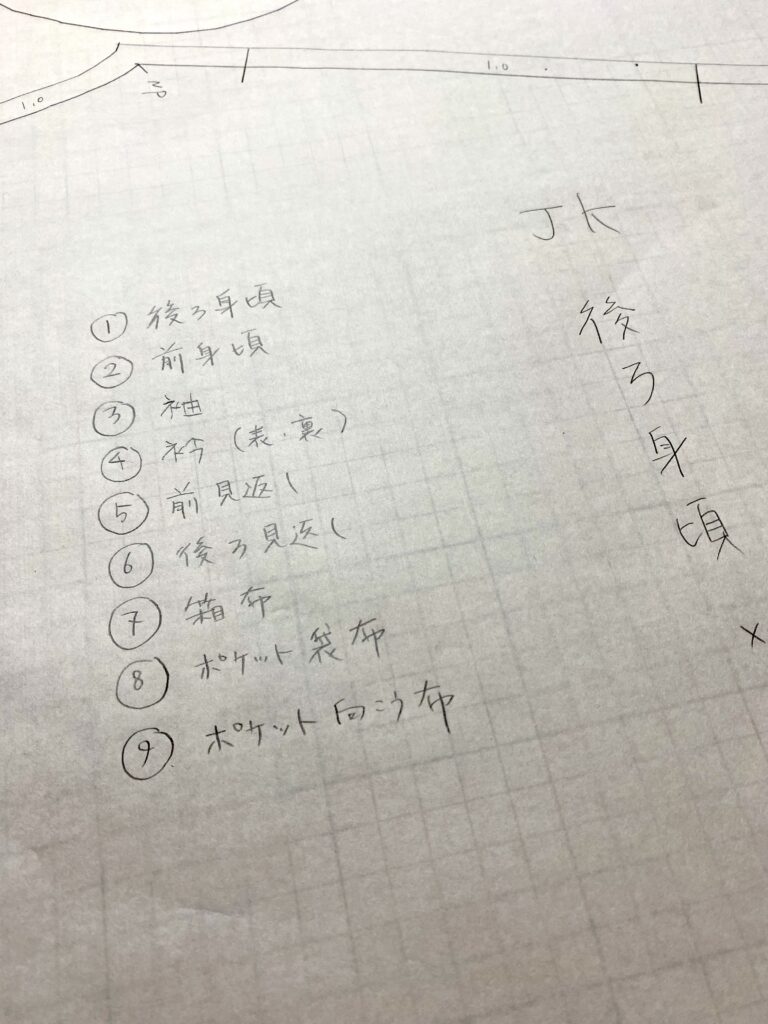 1.0
NP
1.0
JK
後ろ身頃
① 後ろ身頃
② 前身頃
③ 袖
④ 衿 (表・裏)
⑤ 前見返し
⑥ 後ろ見返し
⑦ 箱布
⑧ ポケット袋布
⑨ ポケット向こう布
×